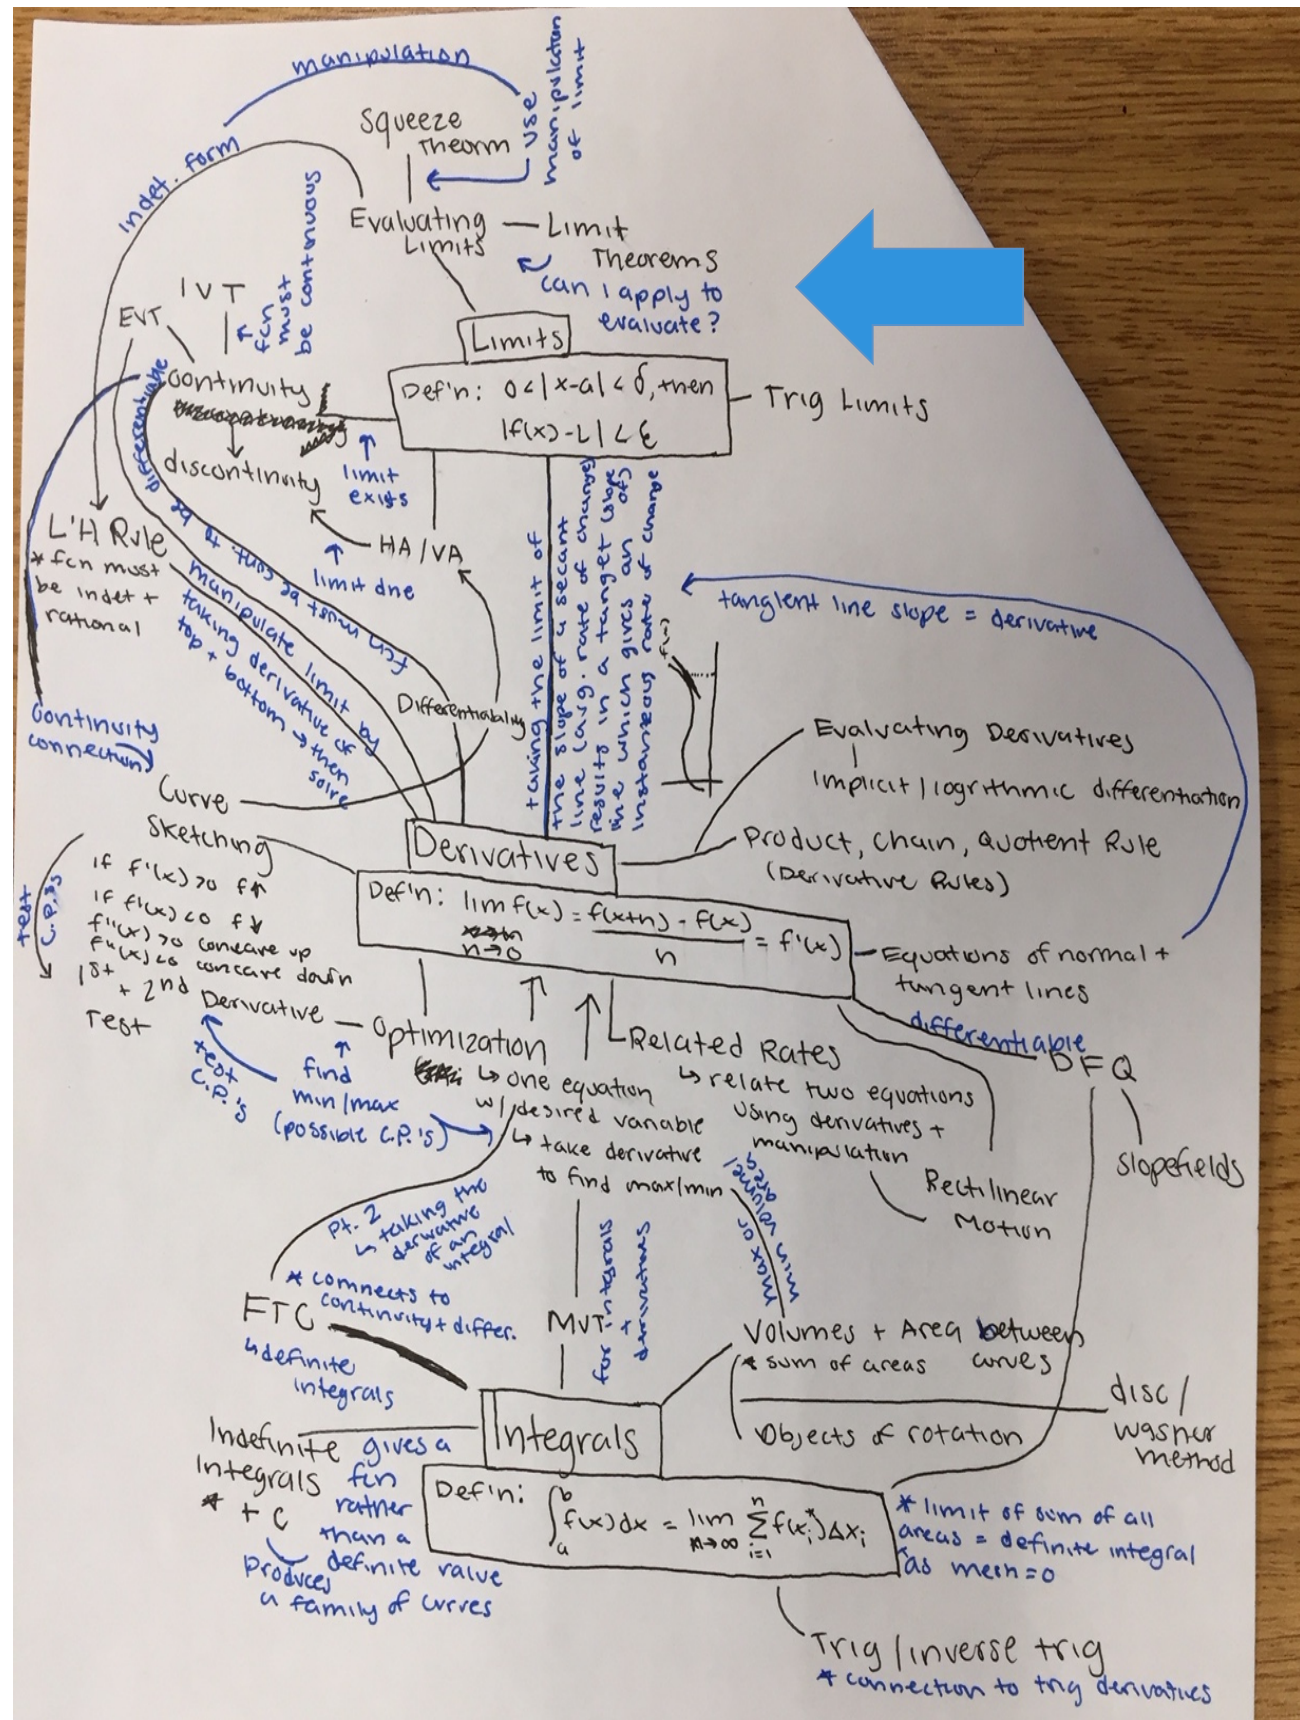 manipulation
Squeeze
Theorm
use
manipulation
of limit
Indet. form
Evaluating
Limits
Limit
Theorems
can I apply to
evaluate?
IVT
fcn
must
be continuous
EVT
Limits
Def'n: 0<|x-a|<δ, then
|f(x)-L|<ε
Trig Limits
continuity
discontinuity
limit
exists
HA/VA
limit dne
L'H Rule
* fcn must
be indet +
rational
fcn must be cont. to be differentiable
manipulate limit by
taking derivative of
top + bottom → then
solve
continuity
connection
taking the limit of
the slope of a secant
line (avg. rate of change)
results in a tanget (slope of)
line which gives an
instaneous rate of change
f(x)
tanglent line slope = derivative
Differentiability
Evaluating Derivatives
implicit/logrithmic differentiation
Product, Chain, Quotient Rule
(Derivative Rules)
Curve
Sketching
if f'(x)>0 f↑
if f'(x)<0 f↓
f"(x)>0 concave up
f"(x)<0 concave down
1st
+ 2nd Derivative
Test
test
C.P.'s
Derivatives
Def'n: lim f(x) = f(x+n) - f(x)
n→0
n
= f'(x)
Equations of normal +
tangent lines
differentiable
DFQ
slopefields
Optimization
↳ one equation
w/ desired variable
↳ take derivative
to find max/min
test
C.P.'s
find
min/max
(possible C.P.'s)
Related Rates
↳ relate two equations
using derivatives +
manipulation
Rectilinear
Motion
Pt. 2
↳ taking the
derivative
of an
integral
max or
min volume/
area
FTC
* connects to
continuity + differ.
↳ definite
integrals
MVT
for integrals
+
derivatives
Volumes + Area between
curves
* sum of areas
Objects of rotation
disc/
washer
method
Integrals
Def'n: ∫ₐᵇ f(x)dx = lim n→∞ Σ i=1 n f(xᵢ*)Δxᵢ
Indefinite
Integrals
* + C
gives a
fcn
rather
than a
definite value
produces
a family of curves
* limit of sum of all
areas = definite integral
as mesh=0
Trig/inverse trig
* connection to trig derivatives